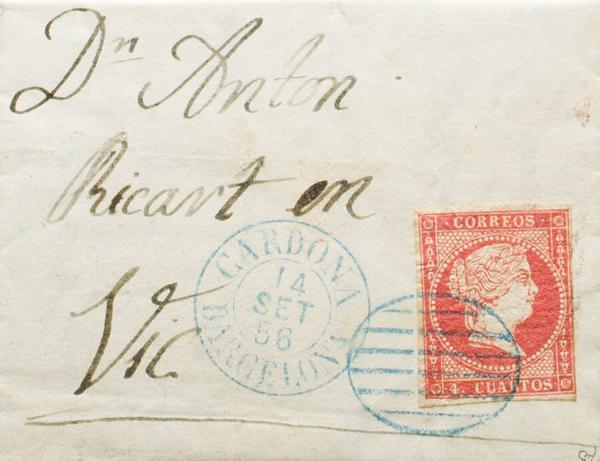 Dn Anton
Ricart en
Vic
CARDONA
14
SET
56
BARCELONA
CORREOS
4 CUARTOS